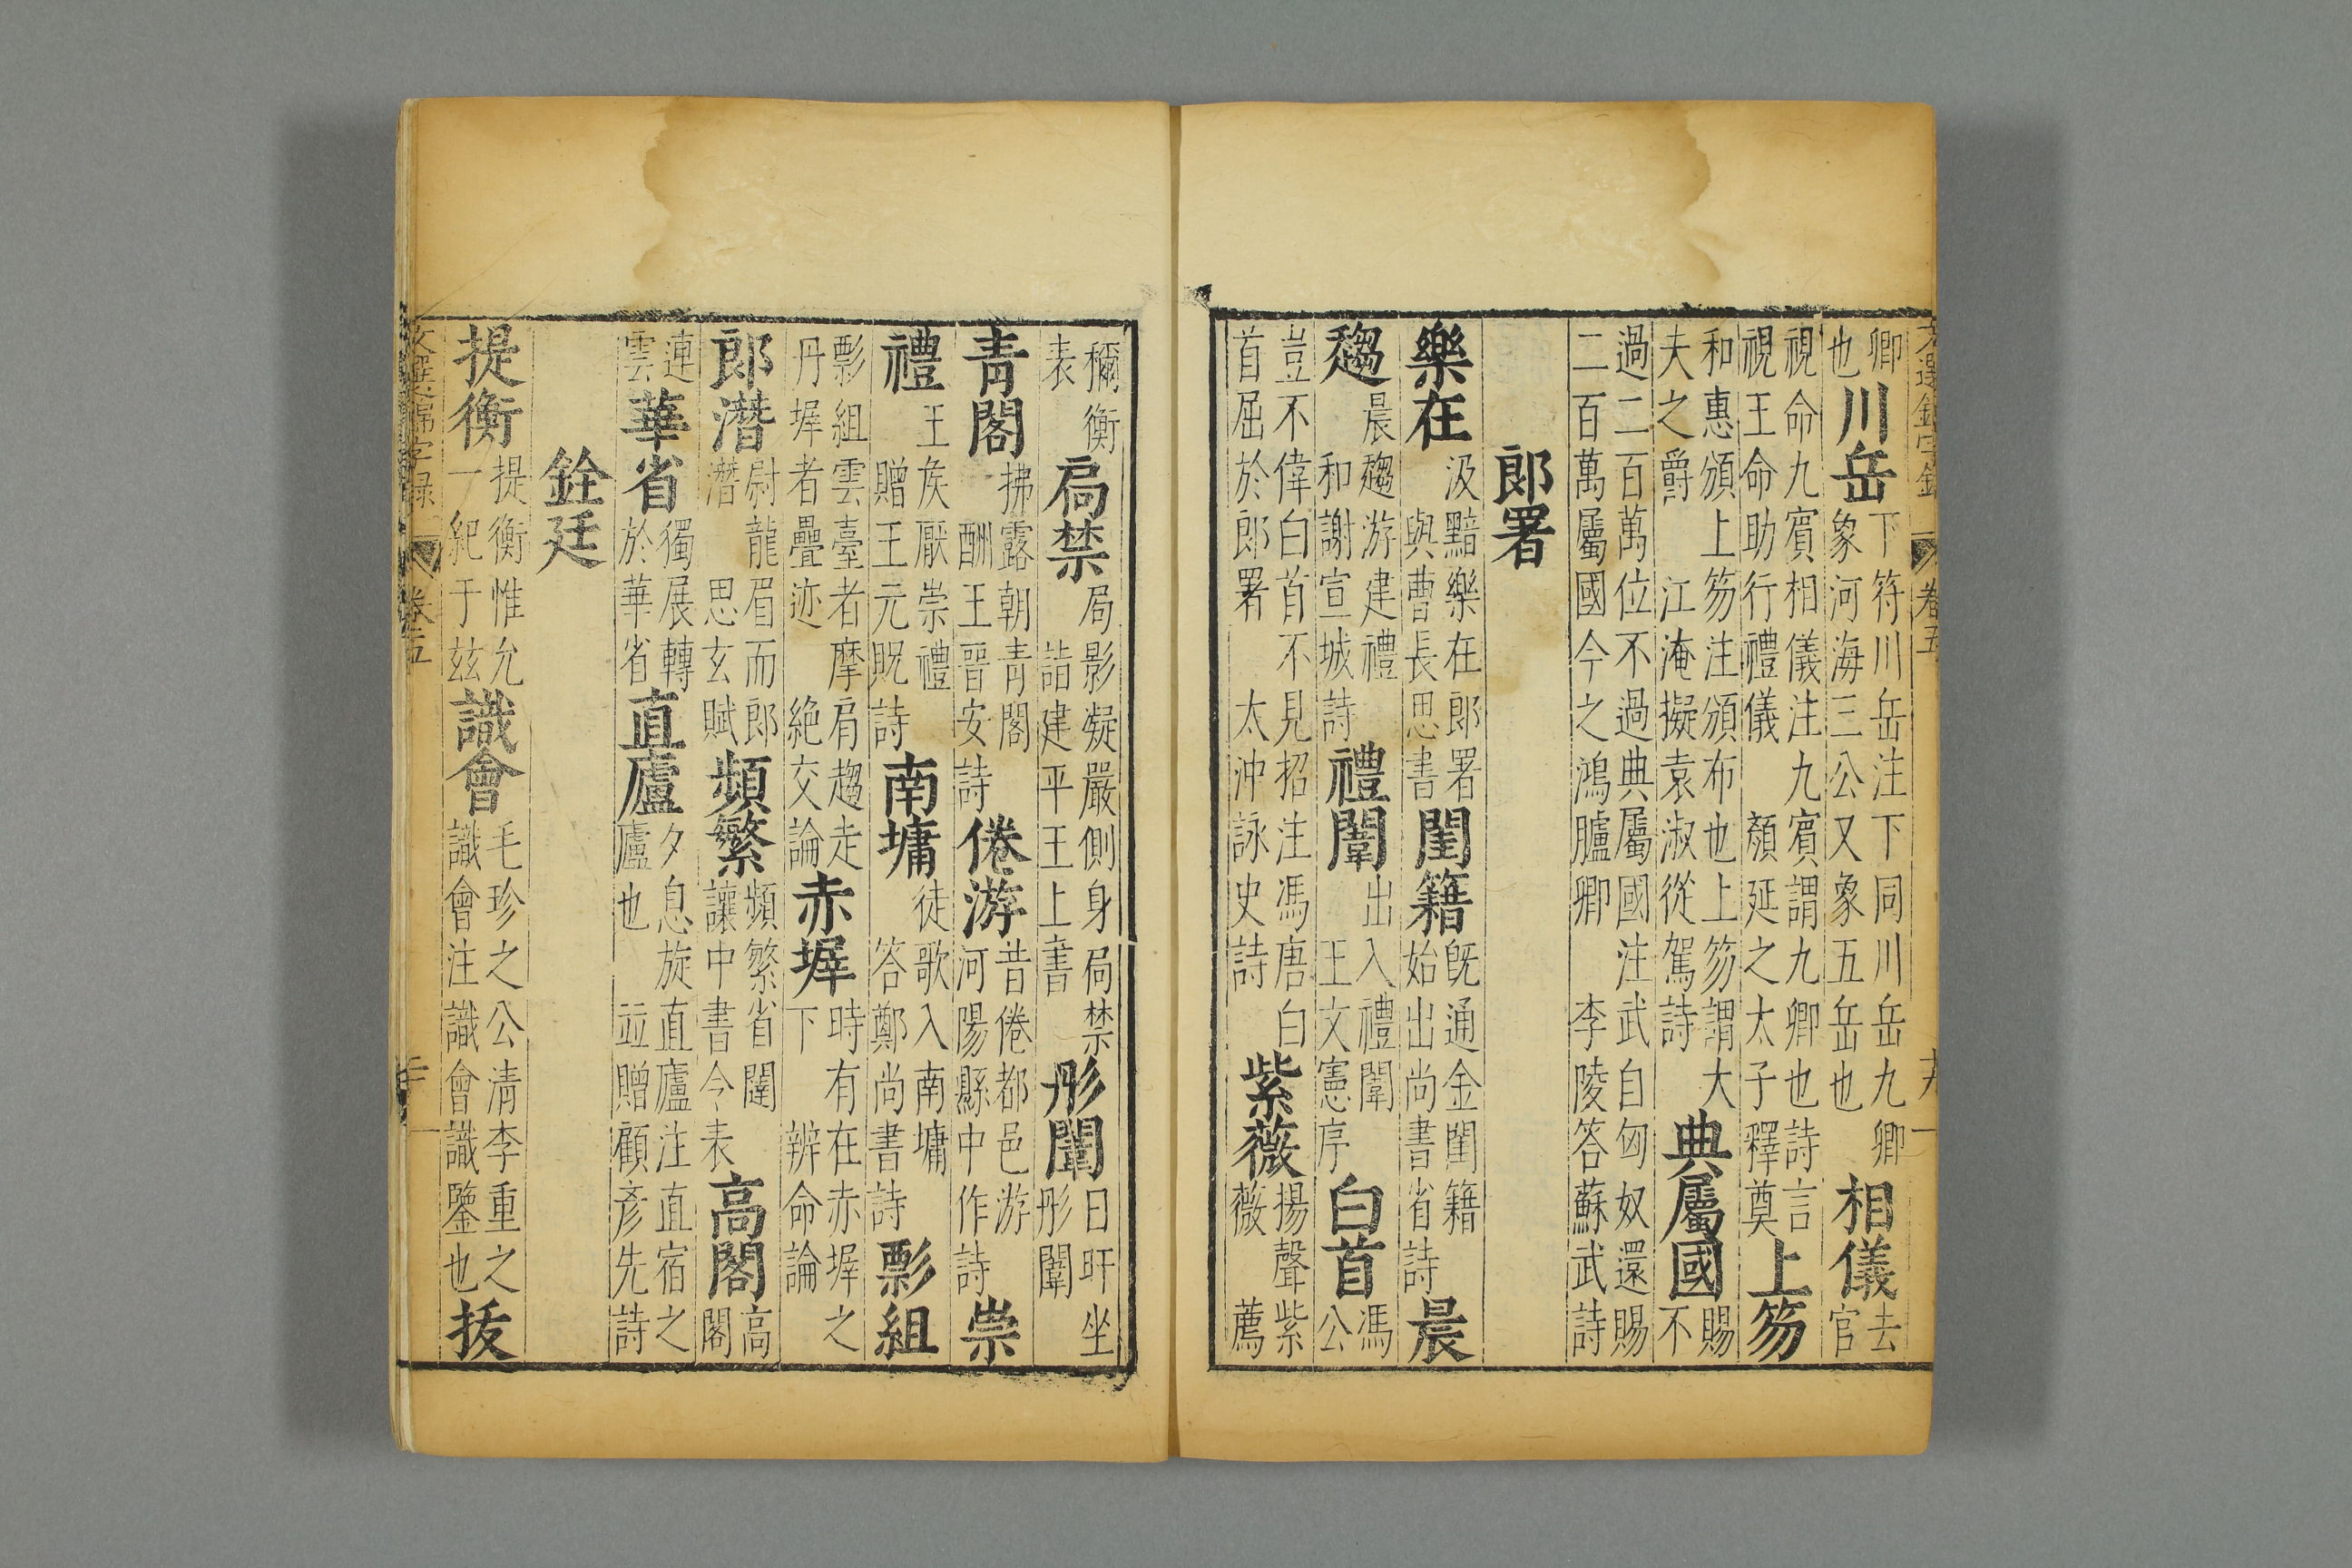 文選錦字錄 卷五 十九
卿也川岳下符川岳注下同川岳九卿象河海三公又象五岳也相儀去官
視命九賓相儀注九賓謂九卿也詩言視王命助行禮儀 顏延之太子釋奠上笏
和惠頒上笏注頒布也上笏謂大夫之爵 江淹擬袁淑從駕詩典屬國賜不
過二百萬位不過典屬國注武自匈奴還賜二百萬屬國今之鴻臚卿 李陵答蘇武詩
郎署
樂在汲黯樂在郎署與曹長思書閨籍旣通金閨籍始出尚書省詩晨
趨晨趨游建禮和謝宣城詩禮闈出入禮闈王文憲序白首馮公
豈不偉白首不見招注馮唐白首屈於郎署 太沖詠史詩紫薇揚聲紫薇 薦
禰衡表扃禁局影凝嚴側身扃禁詣建平王上書彤闈日旰坐彤闈
靑閣拂露朝青閣酬王晉安詩倦游昔倦都邑游河陽縣中作詩崇
禮王矦厭崇禮贈王元貺詩南墉徒歌入南墉答鄭尚書詩影組
影組雲臺者摩肩趨走丹墀者疊迹 絶交論赤墀時有在赤墀之下 辨命論
郎潛尉龍眉而郎潛 思玄賦頻繁頻繁省闥讓中書令表高閣高閣
連雲華省獨展轉於華省直廬夕息旋直廬注直宿之廬也 並贈顧彥先詩
銓廷
提衡提衡惟允一紀于玆識會毛珍之公清李重之識會注識會識鑒也拔
文選錦字録 卷五 二十